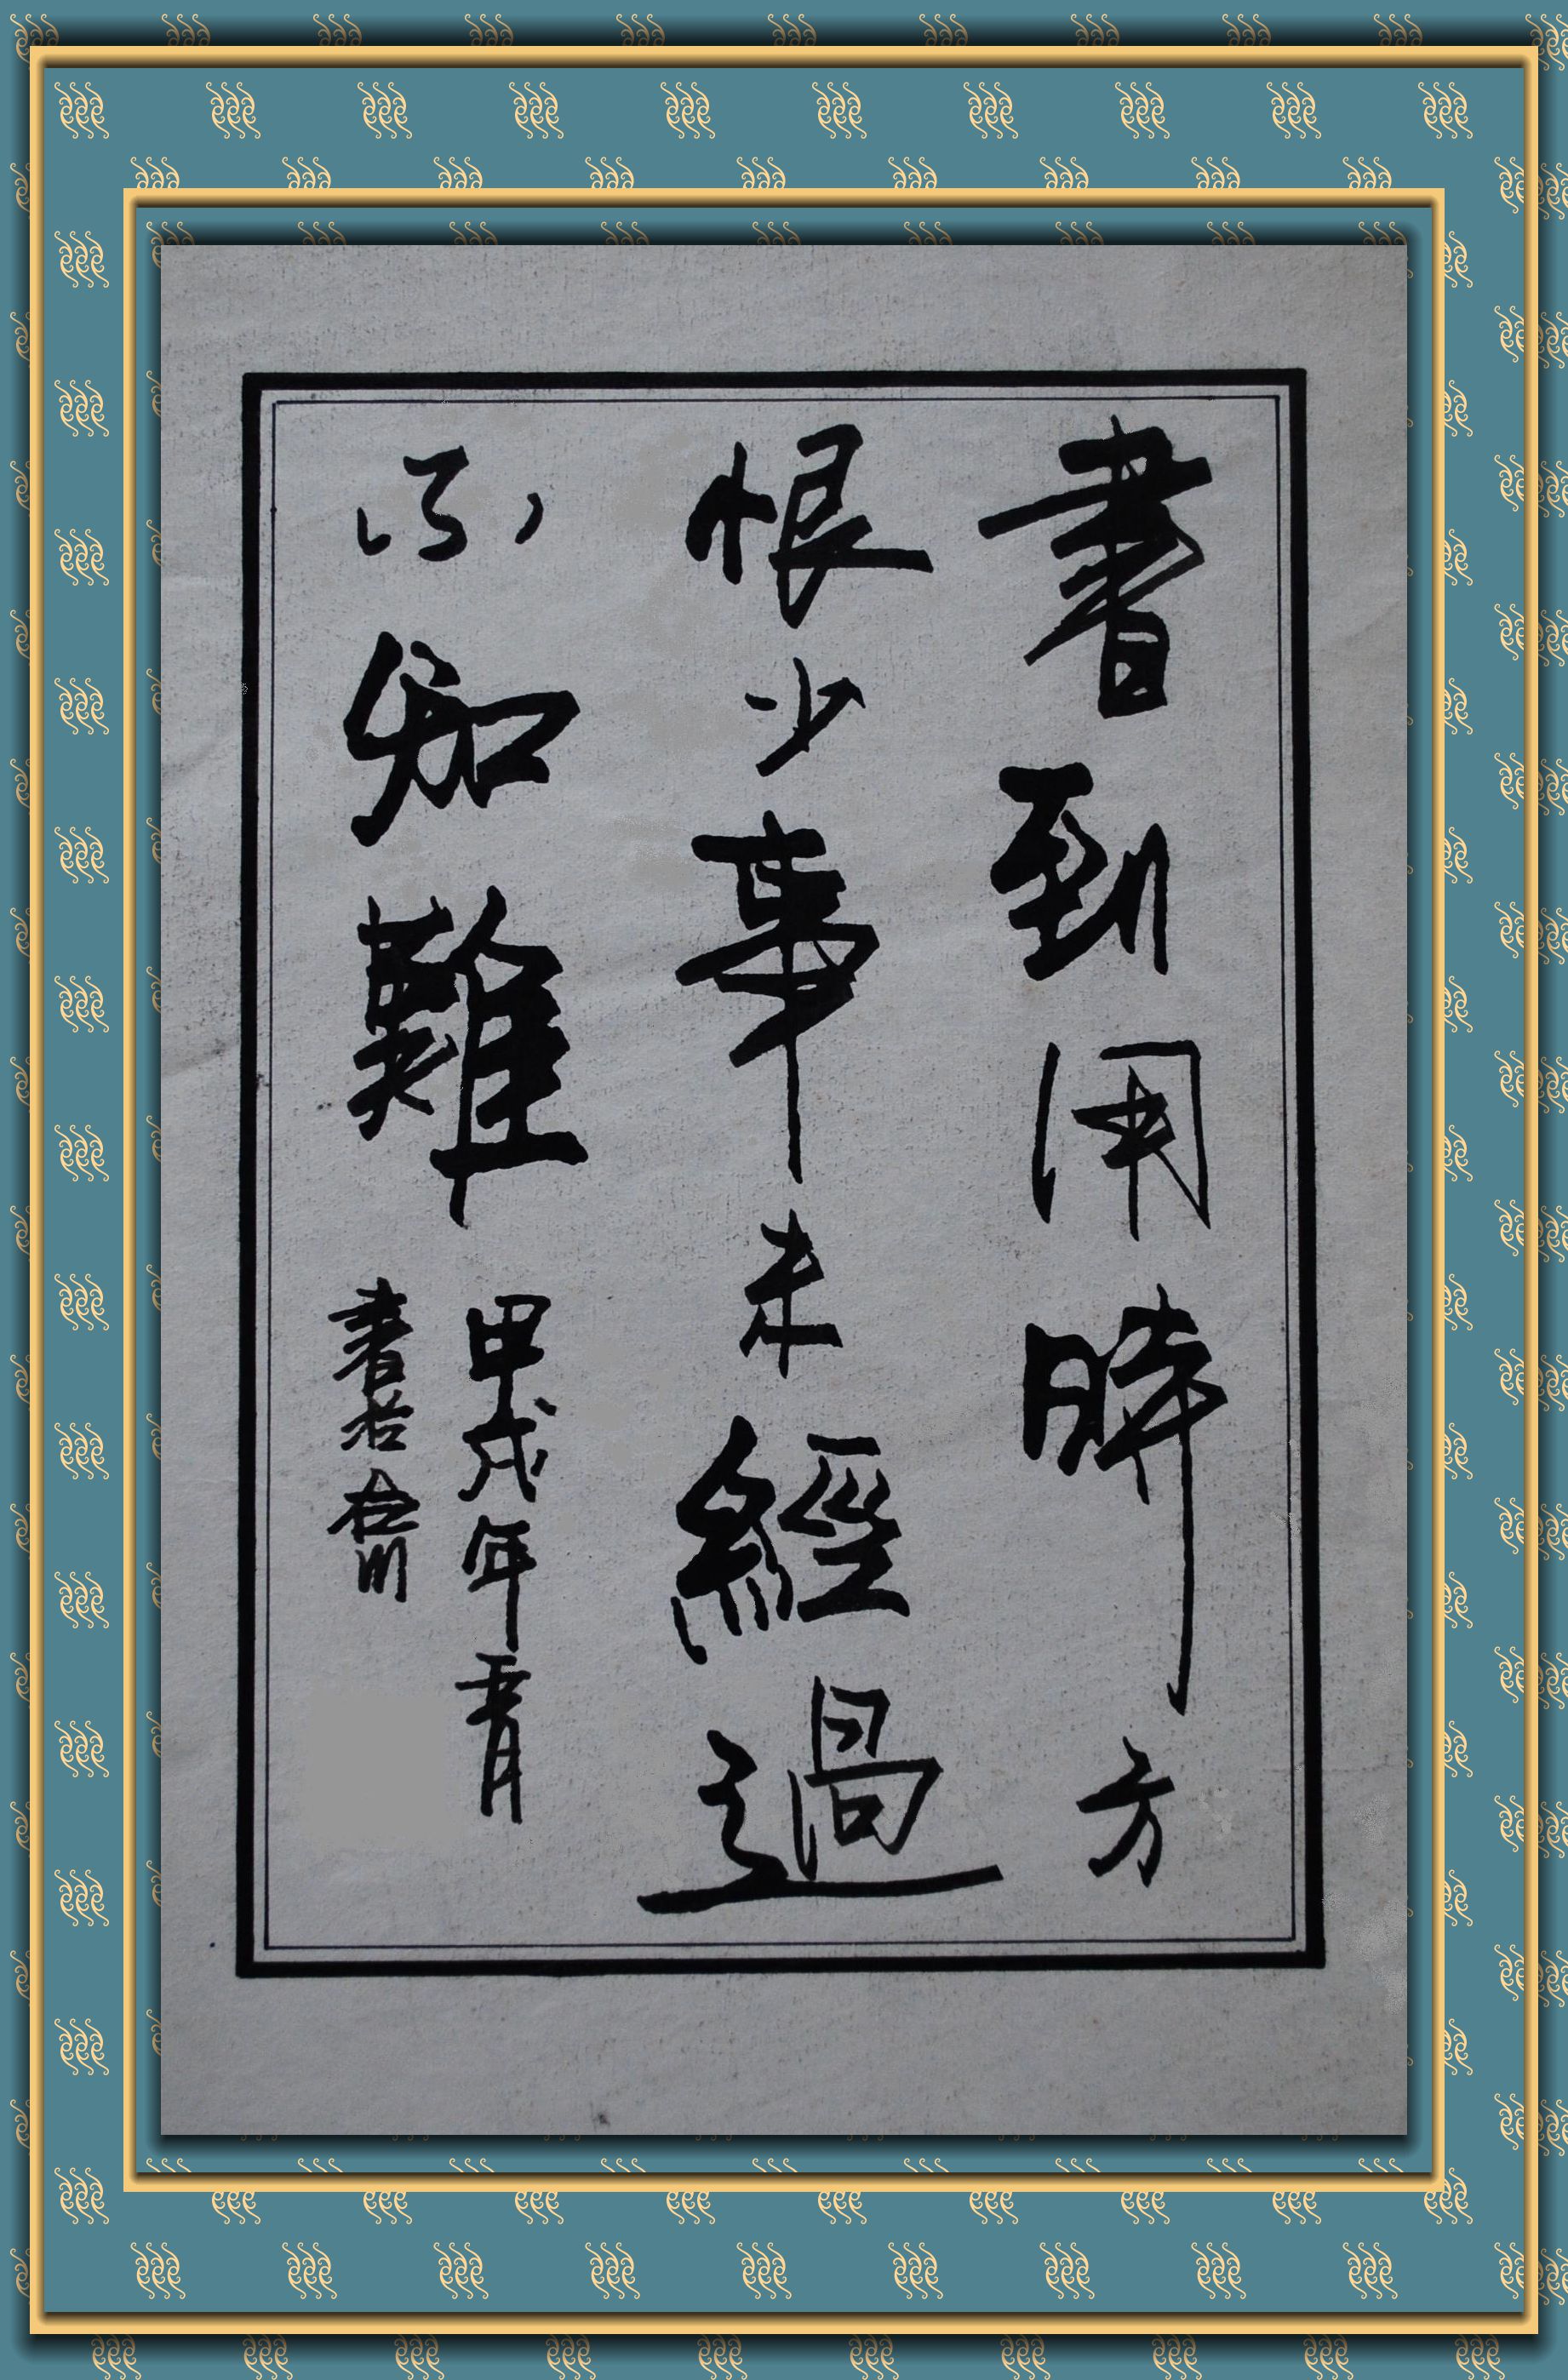 書到用時方
恨少事未經過
不知難
甲戌年
書合川